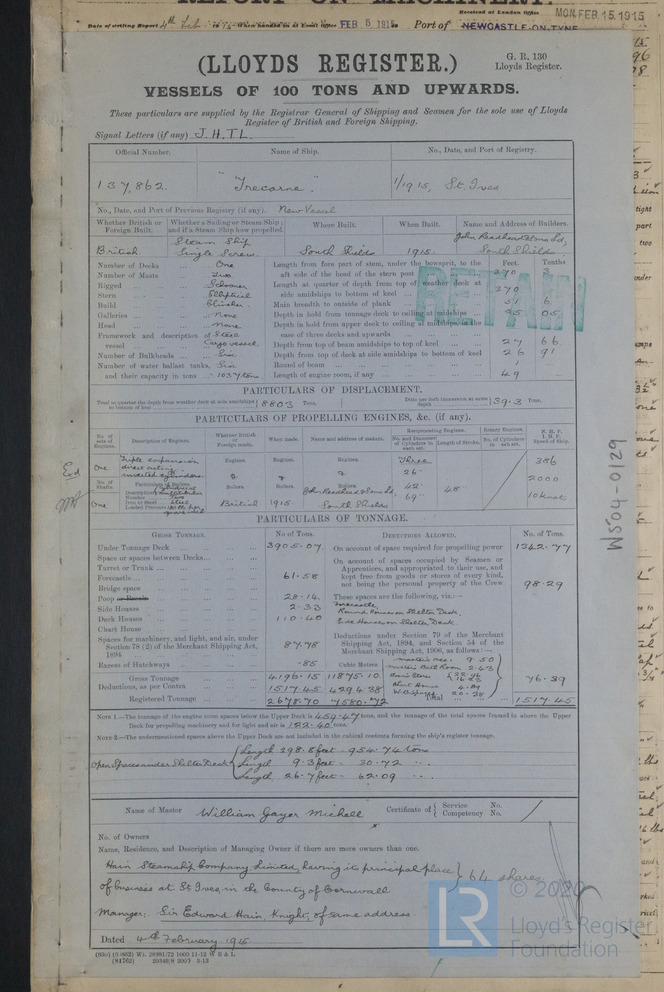 REPORT ON MACHINERY.
Date of writing Report 4th Feb 1915 When handed in at Local Office FEB 5 1915 Port of NEWCASTLE-ON-TYNE
Received at London Office MON. FEB. 15. 1915
(LLOYDS REGISTER.)
G. R. 130
Lloyds Register.
VESSELS OF 100 TONS AND UPWARDS.
These particulars are supplied by the Registrar General of Shipping and Seamen for the sole use of Lloyds
Register of British and Foreign Shipping.
Signal Letters (if any) J.H.T.L.
Official Number. Name of Ship. No., Date, and Port of Registry.
137,862. "Trecarne." 1/1915, St. Ives
No., Date, and Port of Previous Registry (if any). New Vessel
Whether British or Foreign Built. Whether a Sailing or Steam Ship; and if a Steam Ship how propelled. Where Built. When Built. Name and Address of Builders.
British Steam Ship Single Screw South Shields 1915 John Readhead & Sons Ld, South Shields
Number of Decks One
Number of Masts Two
Rigged Schooner
Stern Elliptical
Build Clincher
Galleries None
Head None
Framework and description of vessel Steel Cargo vessel
Number of Bulkheads Six
Number of water ballast tanks, Six
and their capacity in tons 1037 tons
Feet. Tenths
Length from fore part of stem, under the bowsprit, to the
aft side of the head of the stern post 390
Length at quarter of depth from top of weather deck at
side amidships to bottom of keel 390
Main breadth to outside of plank
Depth in hold from tonnage deck to ceiling at midships 05
Depth in hold from upper deck to ceiling at midships, in the
case of three decks and upwards
Depth from top of beam amidships to top of keel 27 66
Depth from top of deck at side amidships to bottom of keel 26 91
Round of beam
Length of engine room, if any 49
RETAIN
PARTICULARS OF DISPLACEMENT.
Total to quarter the depth from weather deck at side amidships to bottom of keel 8803 Tons.
Ditto per inch immersion at same depth 39.3 Tons.
PARTICULARS OF PROPELLING ENGINES, &c. (if any).
No. of sets of Engines. Description of Engines. Whether British or Foreign made. When made. Name and address of makers. Reciprocating Engines. No. and Diameter of Cylinders in each set. Length of Stroke. Rotary Engines. No. of Cylinders in each set. N.H.P. I.H.P. Speed of Ship.
One Triple expansion direct acting inverted cylinders Engines. Engines. Engines. Three 26" 386
No. of Shafts. Particulars of Boilers. Boilers. Boilers. Boilers. 42" 69" 48" 2000
One Description Number Two Iron or Steel Steel Loaded Pressure British 1915 John Readhead & Sons Ld, South Shields 10 knots
PARTICULARS OF TONNAGE.
GROSS TONNAGE. No of Tons. DEDUCTIONS ALLOWED. No. of Tons.
Under Tonnage Deck 3905.07
Space or spaces between Decks
Turret or Trunk
Forecastle 61.58
Bridge space
Poop or Break 28.14
Side Houses 2.33
Deck Houses 110.40
Chart House
Spaces for machinery, and light, and air, under
Section 78 (2) of the Merchant Shipping Act,
1894 87.78
Excess of Hatchways .85
Gross Tonnage 4196.15 11875.10
Deductions, as per Contra 1517.45 4294.38
Registered Tonnage 2678.70 7580.72
Cubic Metres
On account of space required for propelling power 1342.77
On account of spaces occupied by Seamen or
Apprentices, and appropriated to their use, and
kept free from goods or stores of every kind,
not being the personal property of the Crew 98.29
These spaces are the following, viz.:—
Forecastle,
Round House on Shelter Deck,
Side House on Shelter Deck.
Deductions under Section 79 of the Merchant
Shipping Act, 1894, and Section 54 of the
Merchant Shipping Act, 1906, as follows:—
Master's acc: 9.50
Chart House 4.89
76.39
Total 1517.45
NOTE 1.—The tonnage of the engine room spaces below the Upper Deck is 459.47 tons, and the tonnage of the total spaces framed in above the Upper
Deck for propelling machinery and for light and air is 122.40 tons.
NOTE 2.—The undermentioned spaces above the Upper Deck are not included in the cubical contents forming the ship's register tonnage.
Open Spaces under Shelter Deck
Length 298.8 feet - 954.74 tons
Length 9.3 feet - 30.72 "
Length 26.7 feet - 62.09 "
Name of Master William Gayer Michell Certificate of Service No. Competency No.
No. of Owners
Name, Residence, and Description of Managing Owner if there are more owners than one.
Hain Steamship Company Limited, having its principal place
of business at St Ives, in the County of Cornwall 64 shares
Manager: Sir Edward Hain, Knight, of same address
Dated 4th February 1915
W504-0129
LR © 2020
Lloyd's Register
Foundation